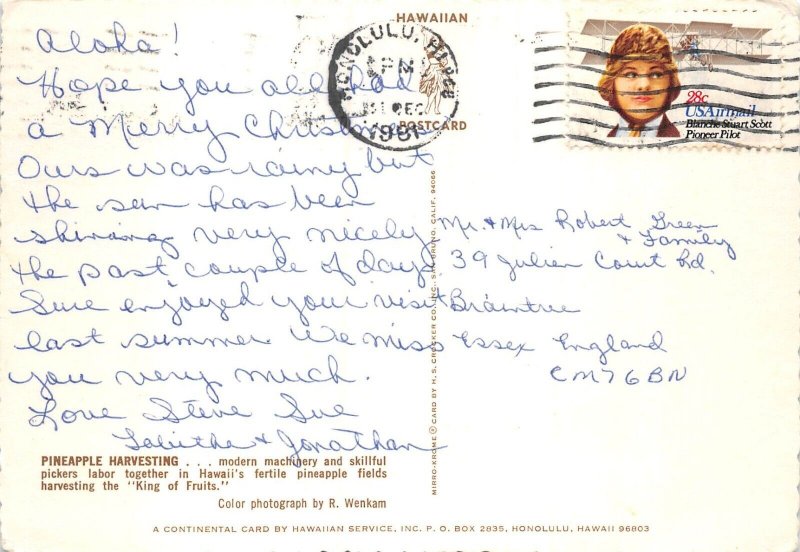 Aloha!
Hope you all had
a Merry Christmas
Ours was rainy but
the sun has been
shining very nicely
the past couple of days
Sure enjoyed your visit
last summer. We miss
you very much.
Love Steve Sue
Tabitha & Jonathan
PINEAPPLE HARVESTING . . . modern machinery and skillful
pickers labor together in Hawaii's fertile pineapple fields
harvesting the "King of Fruits."
Color photograph by R. Wenkam
HAWAIIAN
POSTCARD
HONOLULU,
PM
31 DEC
1981
28c
USAirmail
Blanche Stuart Scott
Pioneer Pilot
Mr. & Mrs Robert Green
& Family
39 Julien Court Rd.
Braintree
Essex England
CM7 6BN
MIRRO-KROME® CARD BY H. S. CROCKER CO., INC. SAN BRUNO, CALIF. 94066
A CONTINENTAL CARD BY HAWAIIAN SERVICE, INC. P. O. BOX 2835, HONOLULU, HAWAII 96803